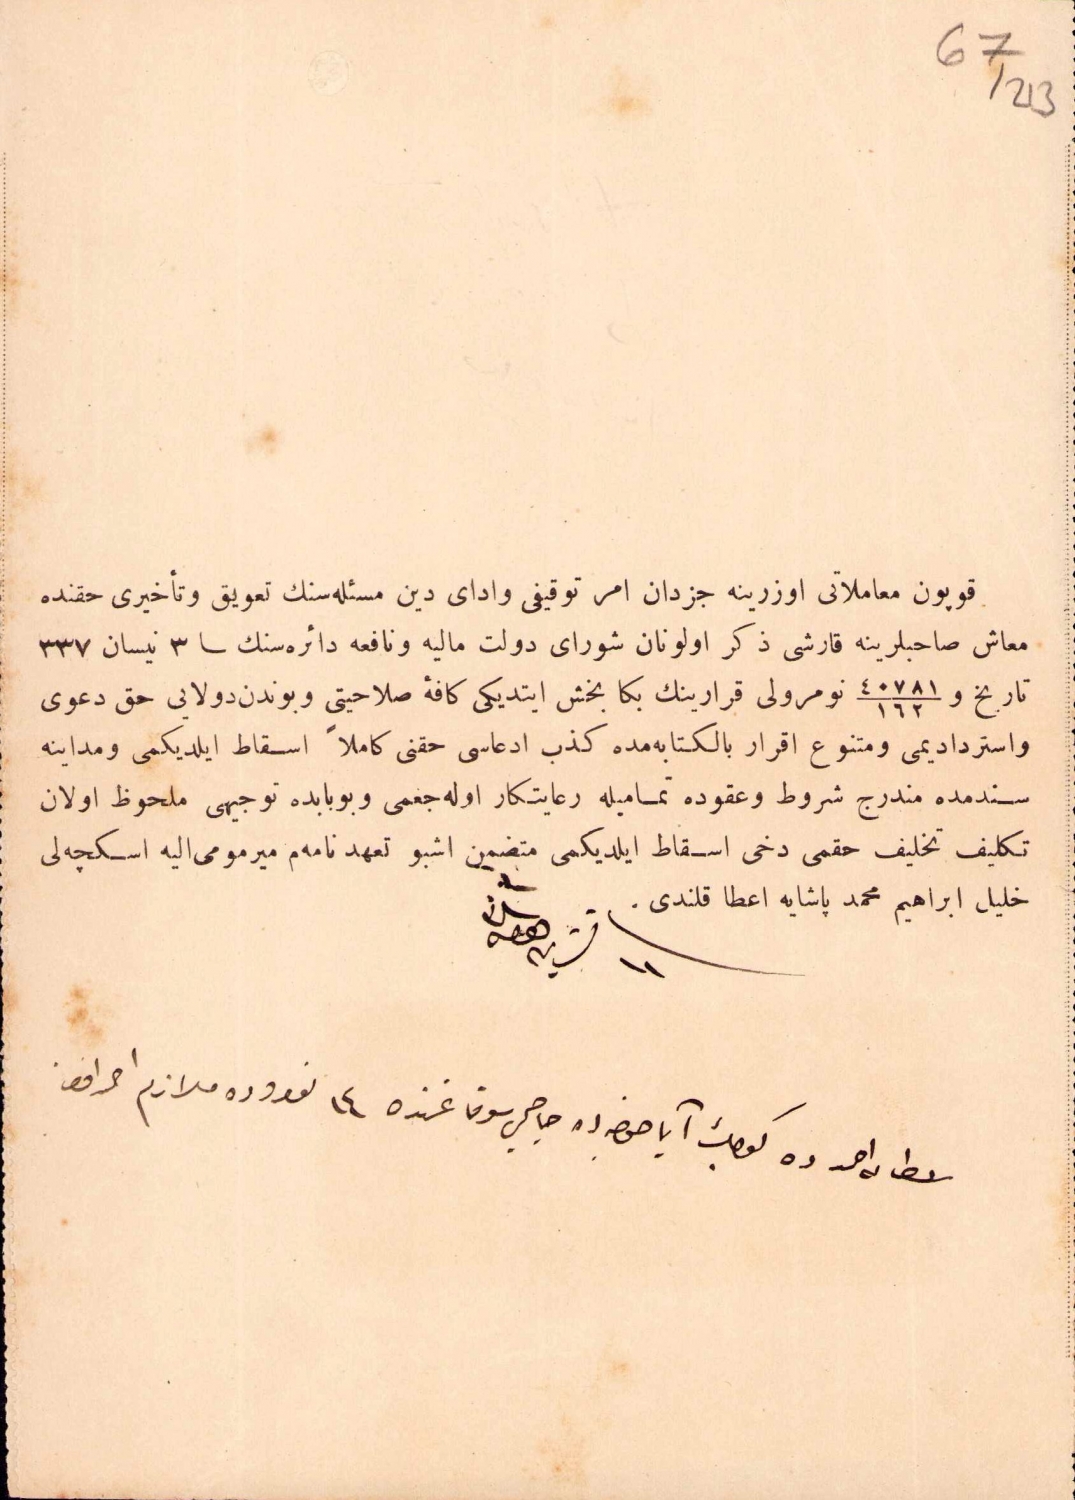 67
/213
قوپون معاملاتی اوزرینه جزدان امر توقیفی وادای دین مسئله‌سنك تعویق وتأخیری حقنده
معاش صاحبلرینه قارشی ذكر اولونان شورای دولت مالیه ونافعه دائره‌سنك ٣ نیسان ٣٣٧
تاریخ و ٤٠٧٨١/١٦٢ نومرولی قرارینك بكا بخش ایتدیكی كافهٔ صلاحیتی وبوندن‌دولایی حق دعوی
واستردادیمی ومتنوع اقرار بالكتابه‌مده كذب ادعاسی حقنی كاملاً اسقاط ایلدیكمی ومداینه
سندمده مندرج شروط وعقوده تمامیله رعایتكار اوله‌جغمی وبوبابده توجیهی ملحوظ اولان
تكلیف تحلیف حقمی دخی اسقاط ایلدیكمی متضمن اشبو تعهد نامه‌م میرمومی‌الیه اسكچه‌لی
خلیل ابراهیم محمد پاشایه اعطا قلندی .
١١
سلطان احمد ده كوچك آیا صوفیه ده جامی سوقاغنده ١٤ نومروده ملازم احمد افندی